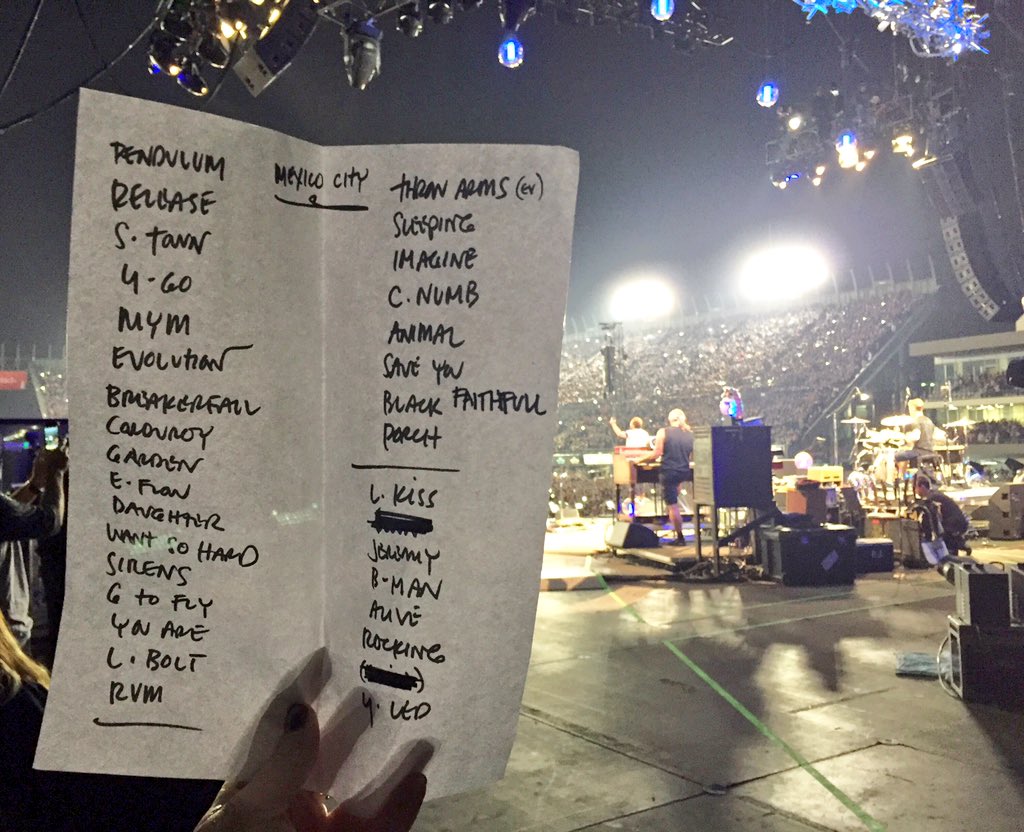 PENDULUM
RELEASE
S. TOWN
U-GO
MYM
EVOLUTION
BREAKERFALL
CORDUROY
GARDEN
E. FLOW
DAUGHTER
WANT SO HARD
SIRENS
G TO FLY
YOU ARE
L. BOLT
RVM
MEXICO CITY
THROW ARMS (EV)
SLEEPING
IMAGINE
C. NUMB
ANIMAL
SAVE YOU
BLACK FAITHFULL
PORCH
L. KISS
JEREMY
B-MAN
ALIVE
ROCKING
Y. LED